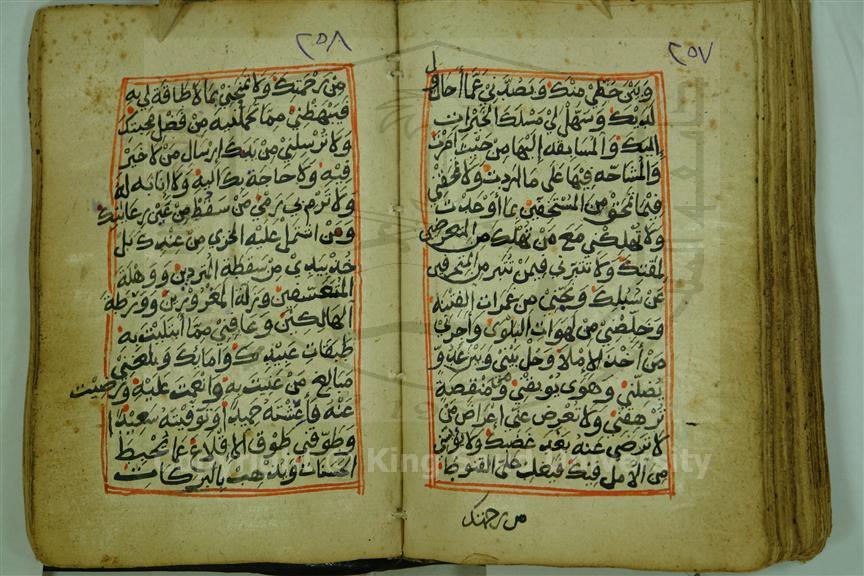 ٢٥٧
وبين حظي منك ويصدني عما أحاول
لديك وسهل لي مسلك الخيرات
إليك والمسابقة إليها من حيث أمرت
والمشاحة فيها على ما أردت ولا تمحقني
فيمن تمحق من المستخفين بما أوعدت
ولا تهلكني مع من تهلك من المتعرضين
لمقتك ولا تتبرني فيمن تتبر من المنحرفين
عن سبيلك ونجني من غمرات الفتنة
وخلصني من لهوات البلوى وأجرني
من أخذ الإملاء وحل بيني وبين عدو
يضلني وهوى يوبقني ومنقصة
ترهقني ولا تعرض عني إعراض من
لا ترضى عنه بعد غضبك ولا تؤيسني
من الأمل فيك فيغلب علي القنوط
من رحمتك
٢٥٨
من رحمتك ولا تمنحني بما لا طاقة لي به
فيبهظني مما تحملنيه من فضل محبتك
ولا ترسلني من يدك إرسال من لا خير
فيه ولا حاجة بك إليه ولا إنابة له
ولا ترم بي رمي من سقط من عين رعايتك
ومن اشتمل عليه الخزي من عندك بل
خذ بيدي من سقطة المتردين ووهلة
المتعسفين وزلة المغرورين وورطة
الهالكين وعافني مما ابتليت به
طبقات عبيدك وإمائك وبلغني
مبالغ من عنيت به وأنعمت عليه ورضيت
عنه فأعشته حميدا وتوفيته سعيدا
وطوقني طوق الإقلاع عما يحبط
الحسنات ويذهب بالبركات
King University